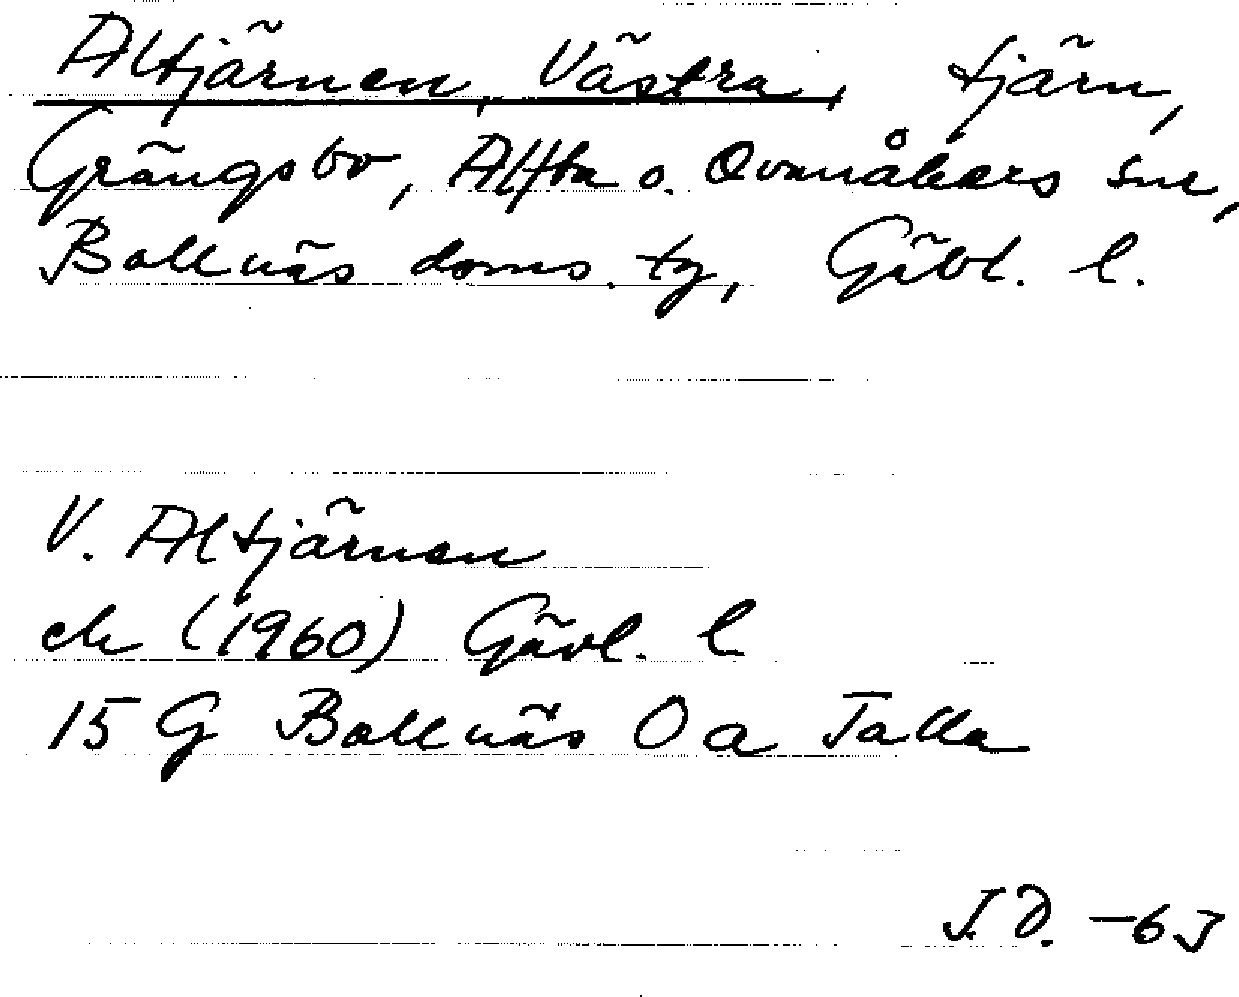 Altjärnen, Västra, tjärn,
Grängsbo, Alfta o. Ovanåkers snr,
Bollnäs doms. tg, Gävl. l.
V. Altjärnen
ek (1960) Gävl. l
15 G Bollnäs O a Talla
J.D. -63